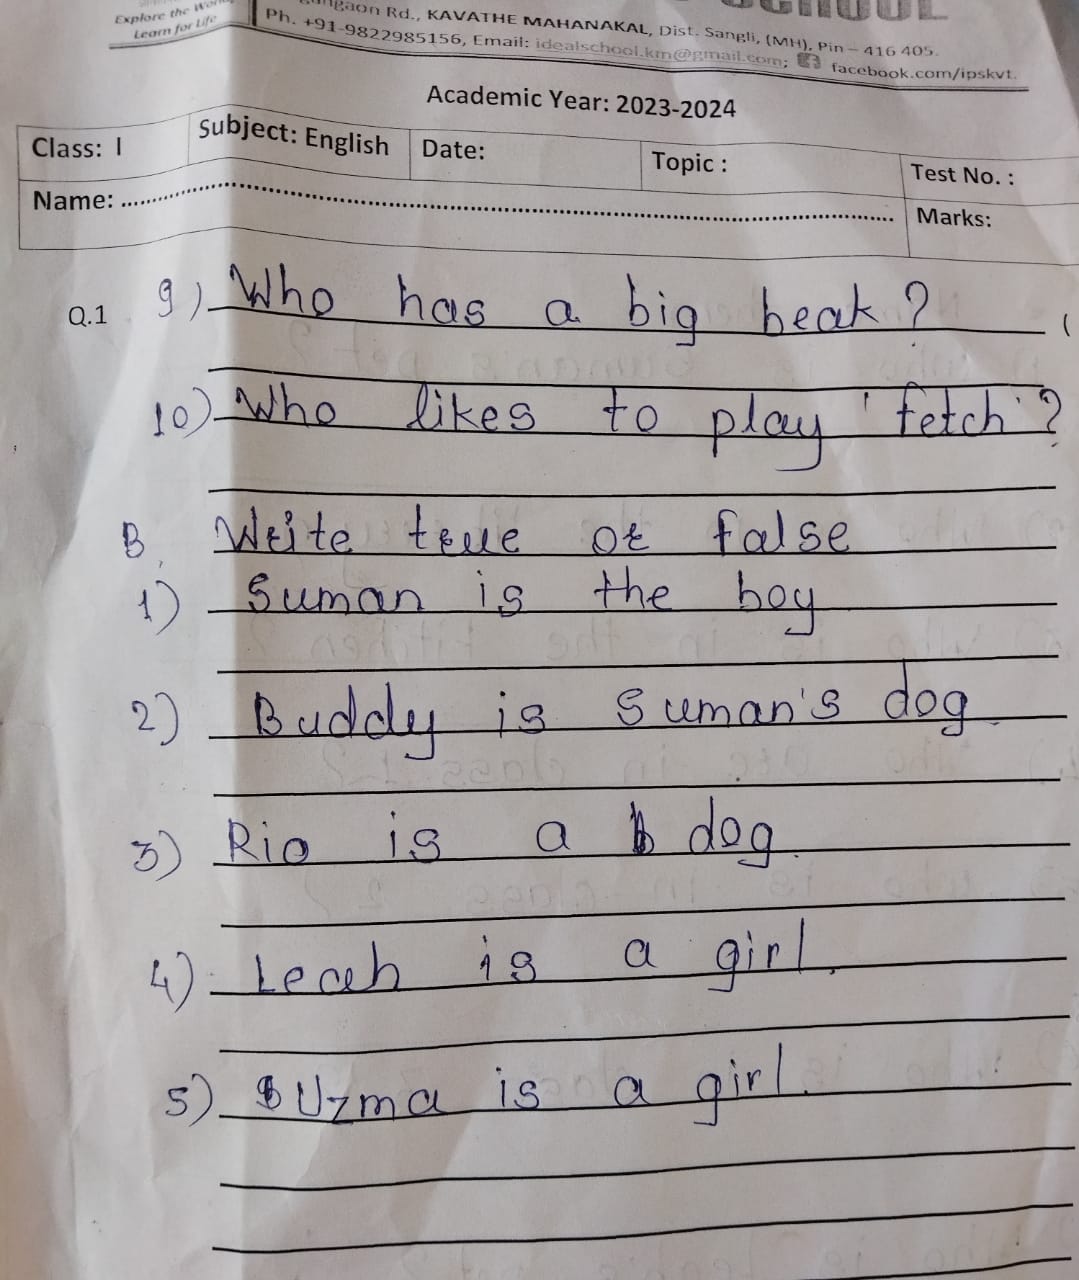 Explore the World
Learn for Life
SCHOOL
Rd., KAVATHE MAHANAKAL, Dist. Sangli, (MH), Pin – 416 405.
Ph. +91-9822985156, Email: idealschool.km@gmail.com; facebook.com/ipskvt.
Academic Year: 2023-2024
Class: I Subject: English Date: Topic : Test No. :
Name: Marks:
Q.1 9) Who has a big beak?
10) Who likes to play 'fetch'?
B. Write true or false
1) Suman is the boy
2) Buddy is Suman's dog.
3) Rio is a dog.
4) Leah is a girl.
5) Uzma is a girl.